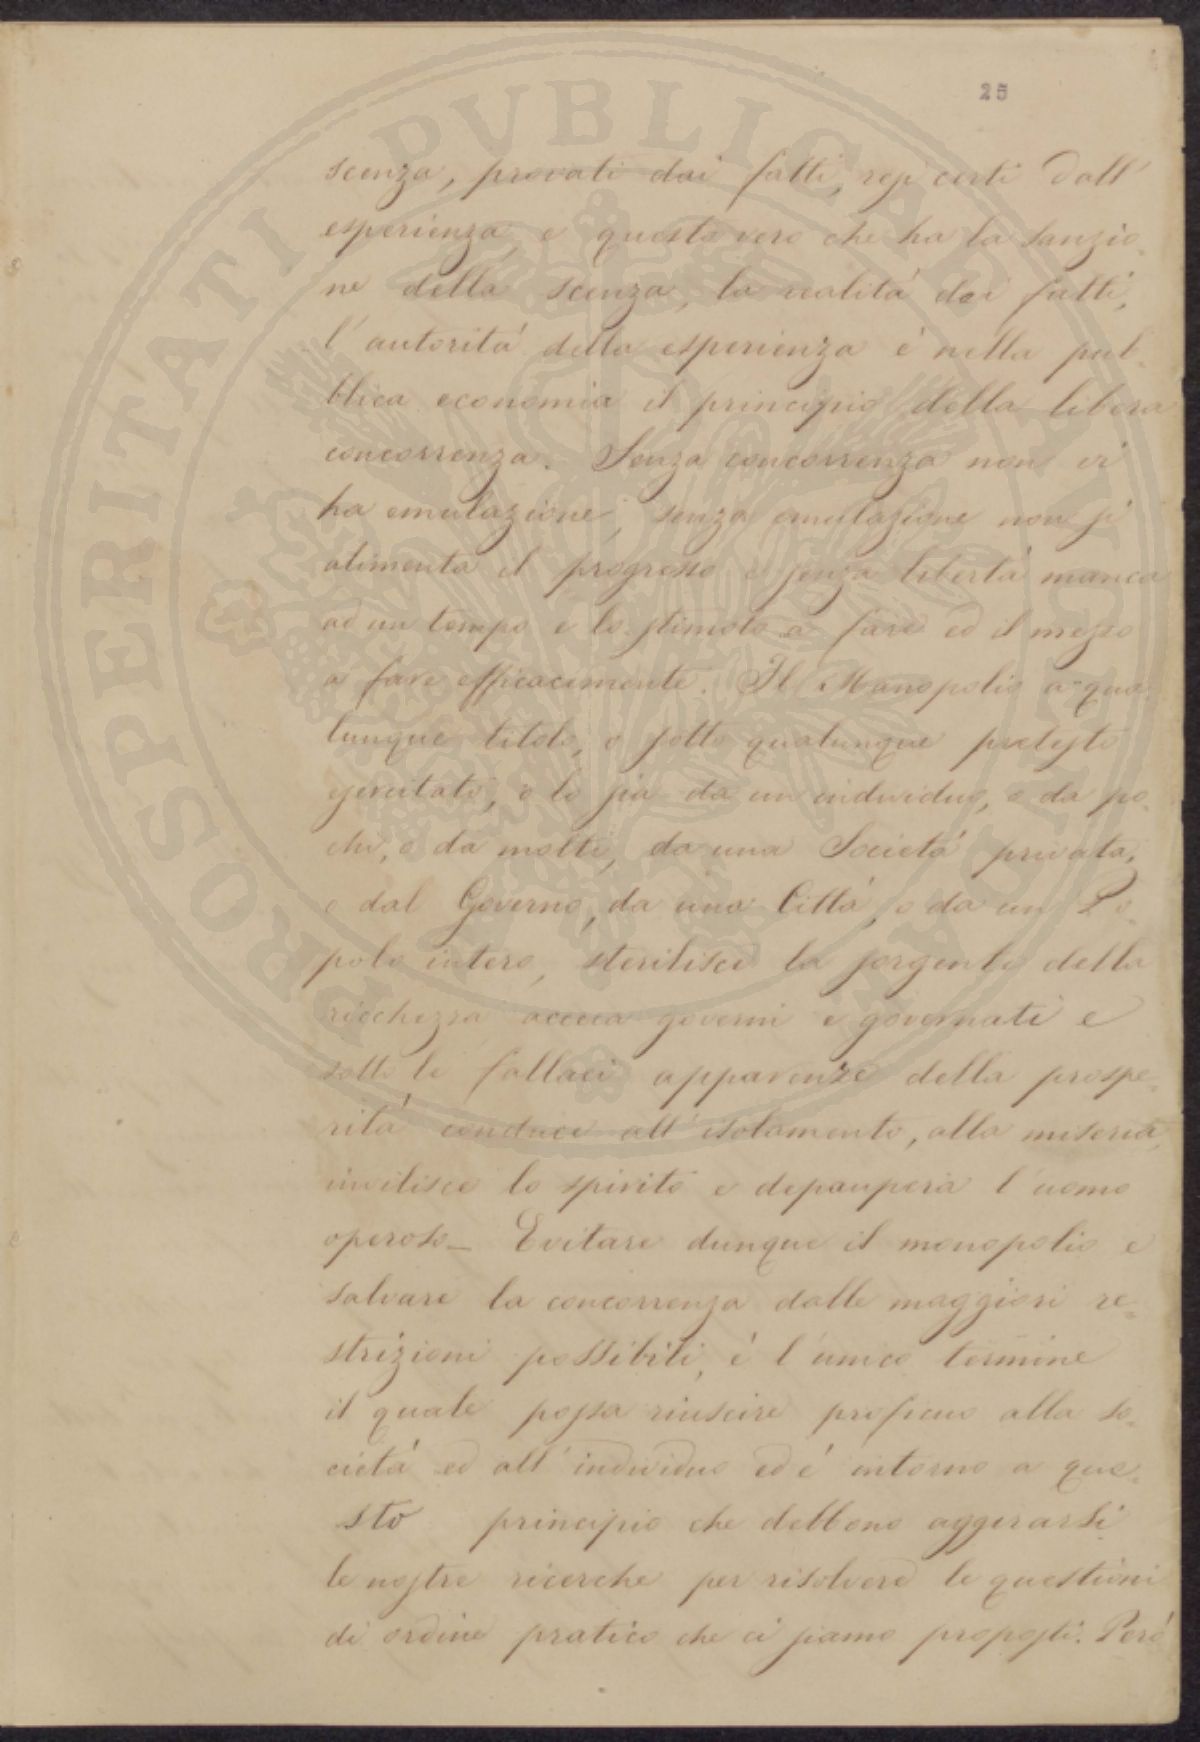 25
scenza, provati dai fatti, resi certi dall'
esperienza, e questo vero che ha la sanzio-
ne della scenza, la realità dei fatti,
l'autorità della esperienza è nella pub-
blica economia il principio della libera
concorrenza. Senza concorrenza non vi
ha emulazione, senza emulazione non si
alimenta il progresso e senza libertà manca
ad un tempo e lo stimolo a fare ed il mezzo
a fare efficacemente. Il Monopolio a qua
lunque titolo, o sotto qualunque pretesto
esercitato, o lo sia da un individuo, o da po-
chi, o da molti, da una Società privata,
o dal Governo, da una Città, o da un Po-
polo intero, sterilisce la sorgente della
ricchezza accieca governi e governati e
sotto le fallaci apparenze della prospe-
rità conduce all'isolamento, alla miseria,
invilisce lo spirito e depaupera l'uomo
operoso_ Evitare dunque il monopolio e
salvare la concorrenza dalle maggiori re-
strizioni possibili, è l'unico termine
il quale possa riuscire proficuo alla so-
cietà ed all'individuo ed è intorno a que-
sto principio che debbono aggirarsi
le nostre ricerche per risolvere le questioni
di ordine pratico che ci siamo proposti. Però
PROSPERITATI PVBLICAE AVGENDAE